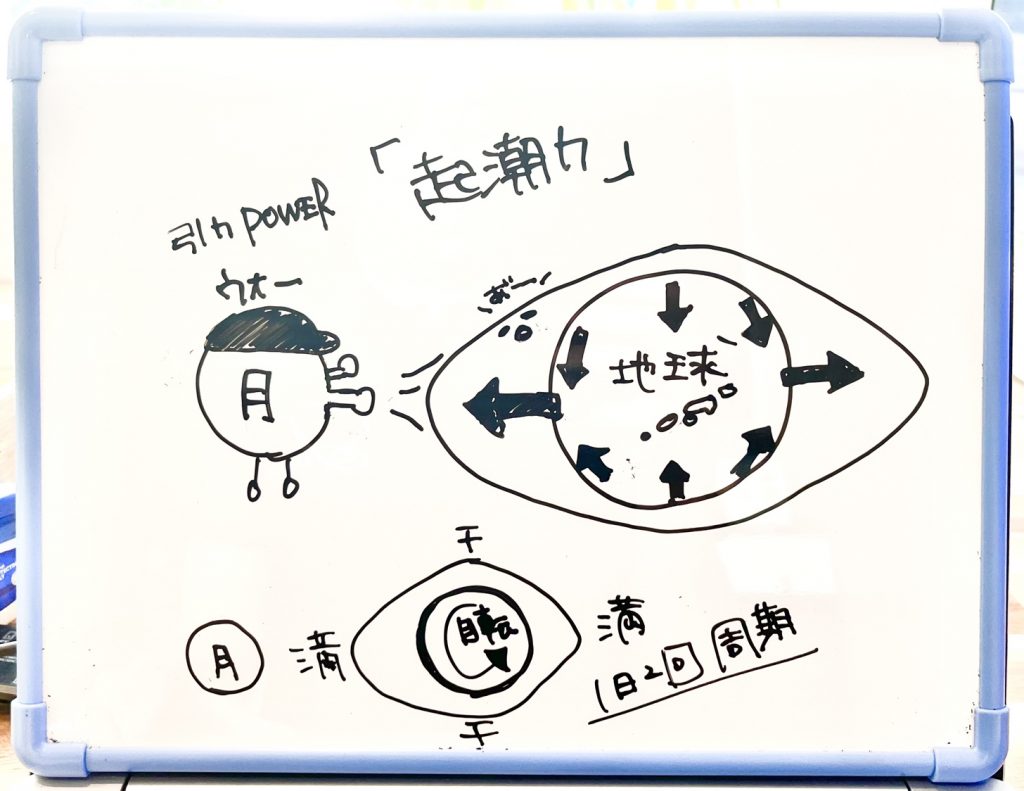 「起潮力」
引力POWER
ウオー
月
地球
干
月
満
自転
満
1日2回周期
干